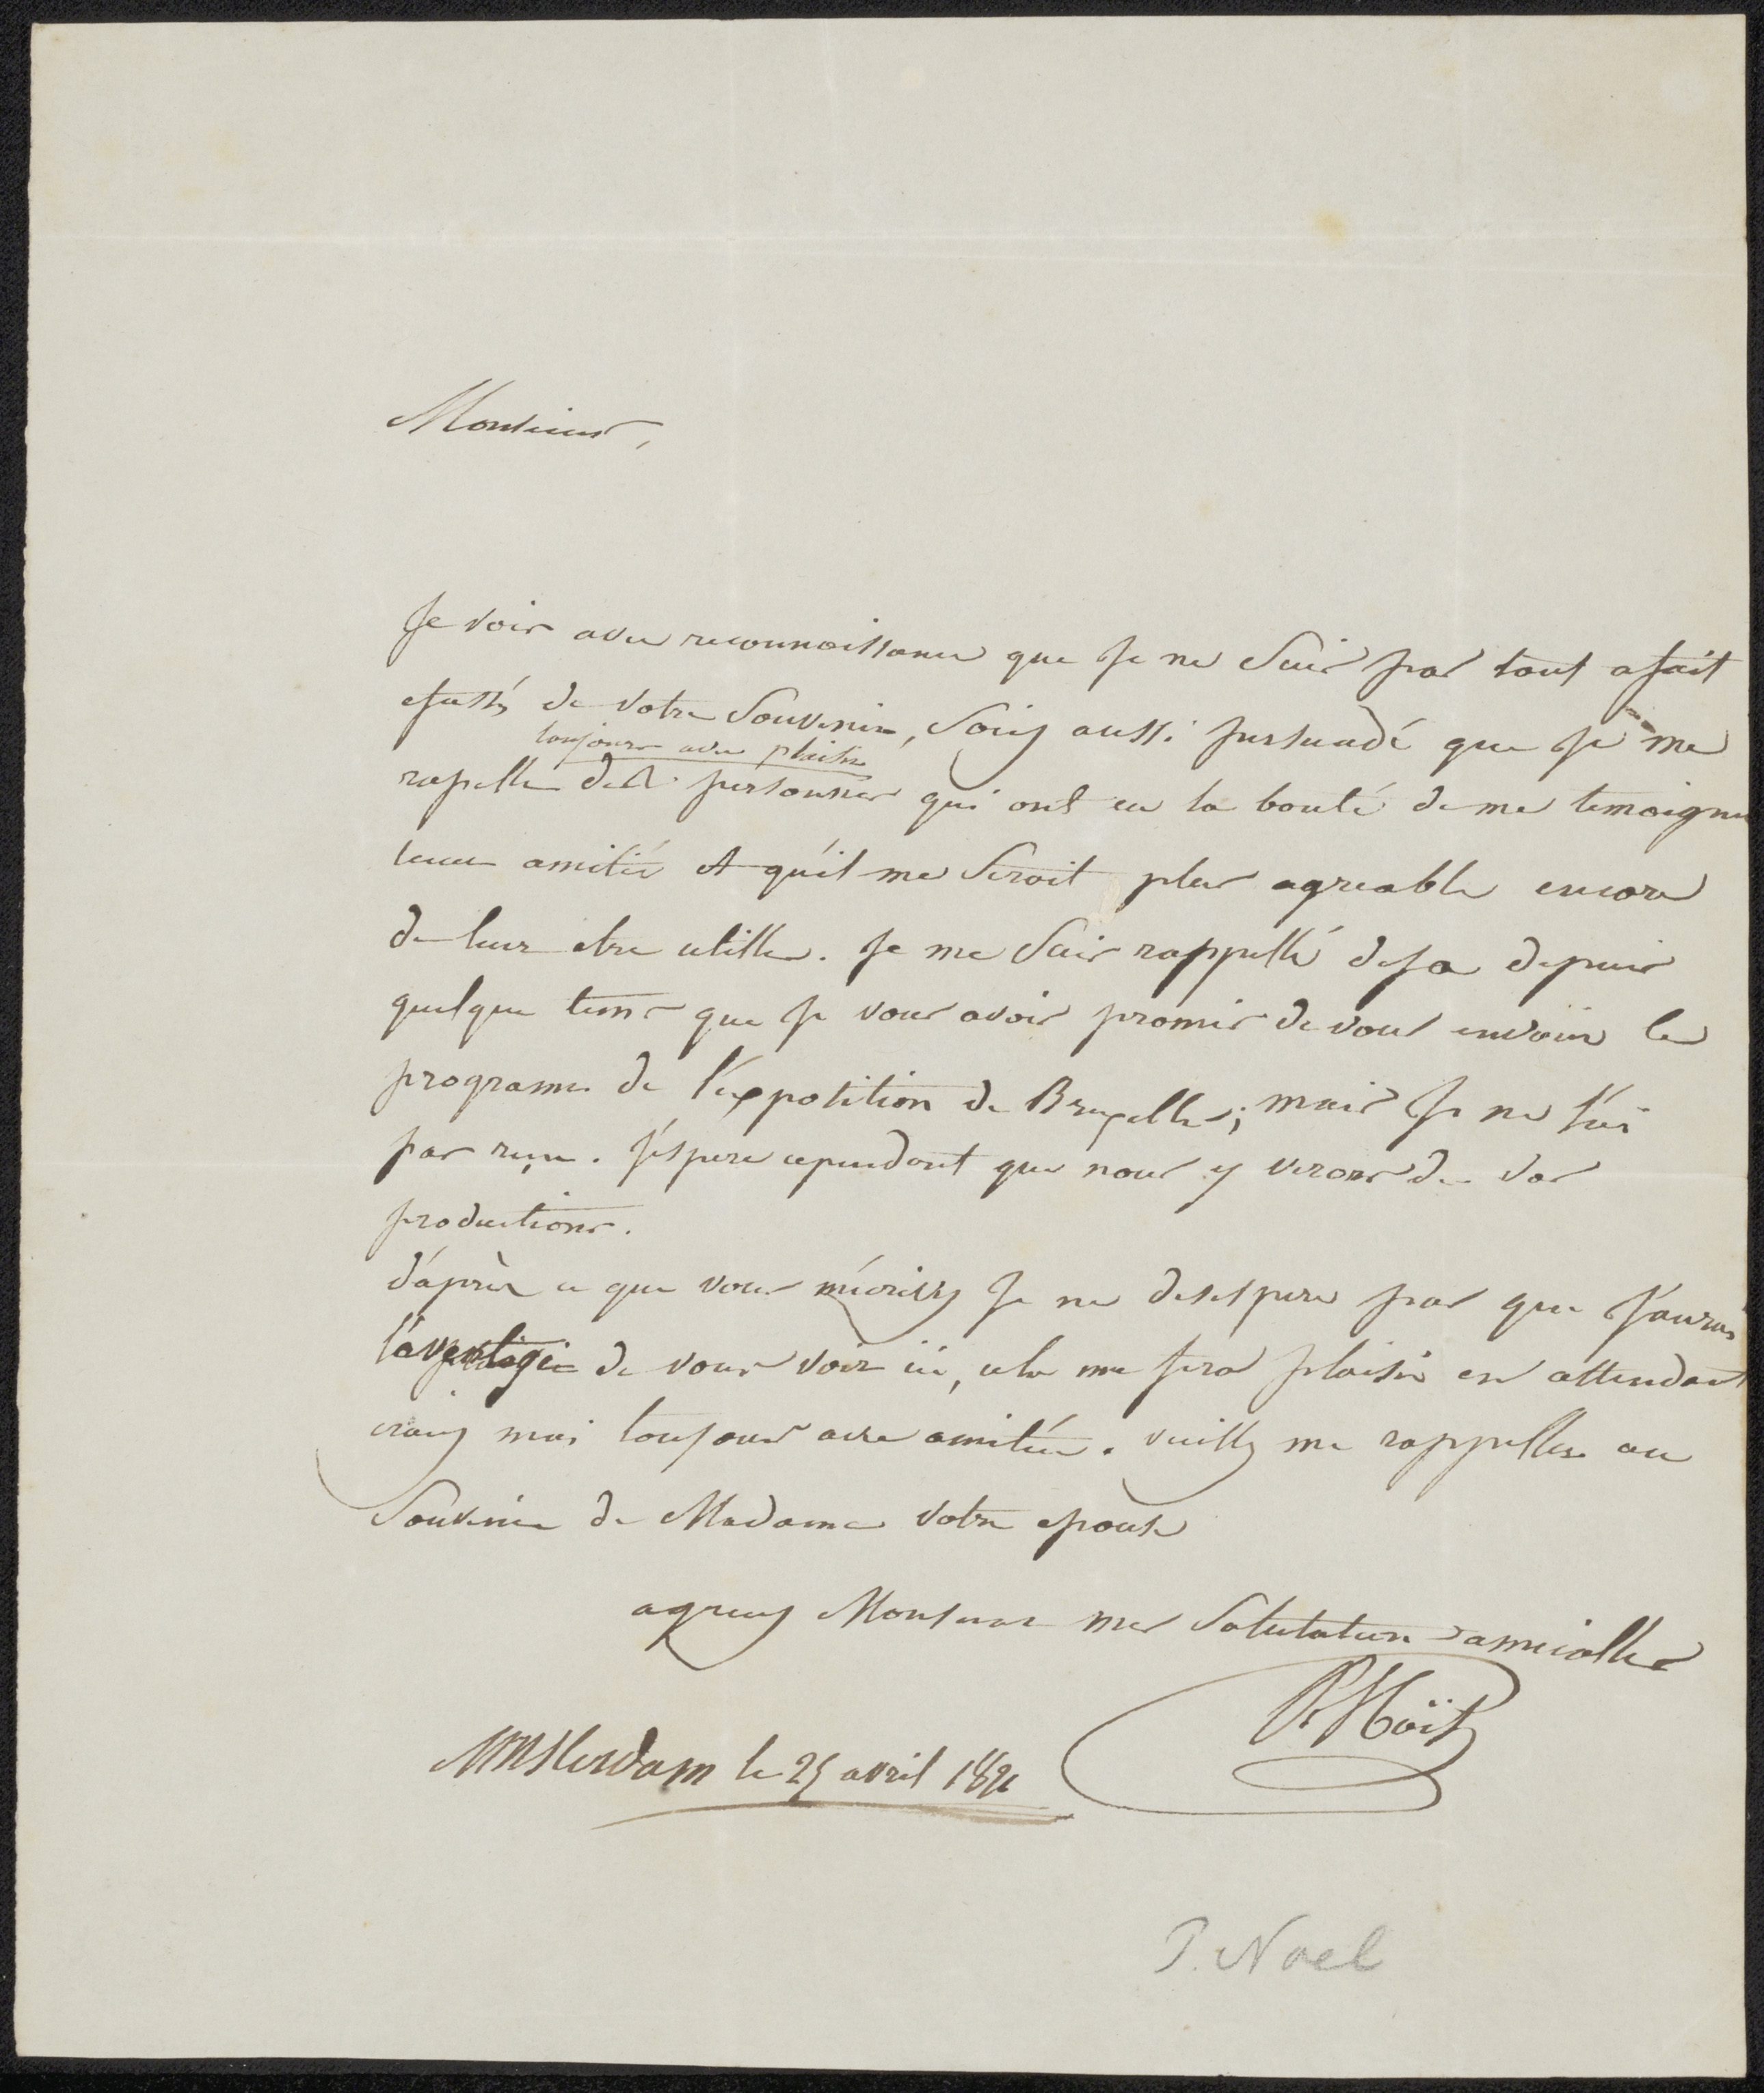 Monsieur,
Je vois avec reconnoissance que Je ne Suis pas tout afait
efassé de votre Souvenir, Soiez aussi persuadé que Je me
toujours avec plaisir
rapelle des personnes qui ont eu la bonté de me temoigner
leur amitié et qu'il me Seroit plus agreable encore
de leur etre utille. Je me Suis rappellé deja depuis
quelque tems que Je vous avois promis de vous envoier le
programe de l'exposition de Bruxelles; mais Je ne l'ai
pas reçu. J'éspere cependant que nous y verons de vos
productions.
d'après ce que vous m'écrivez Je ne desespere pas que J'aurai
l'aventage de vous voir ici, cela me fera plaisir en attendant
croiez moi toujours avec amitiée. veuillez me rappeller au
Souvenir de Madame votre epouse
agreez Monsieur mes Salutations amicalles
P. Noël
Amsterdam le 25 avril
P. Noel